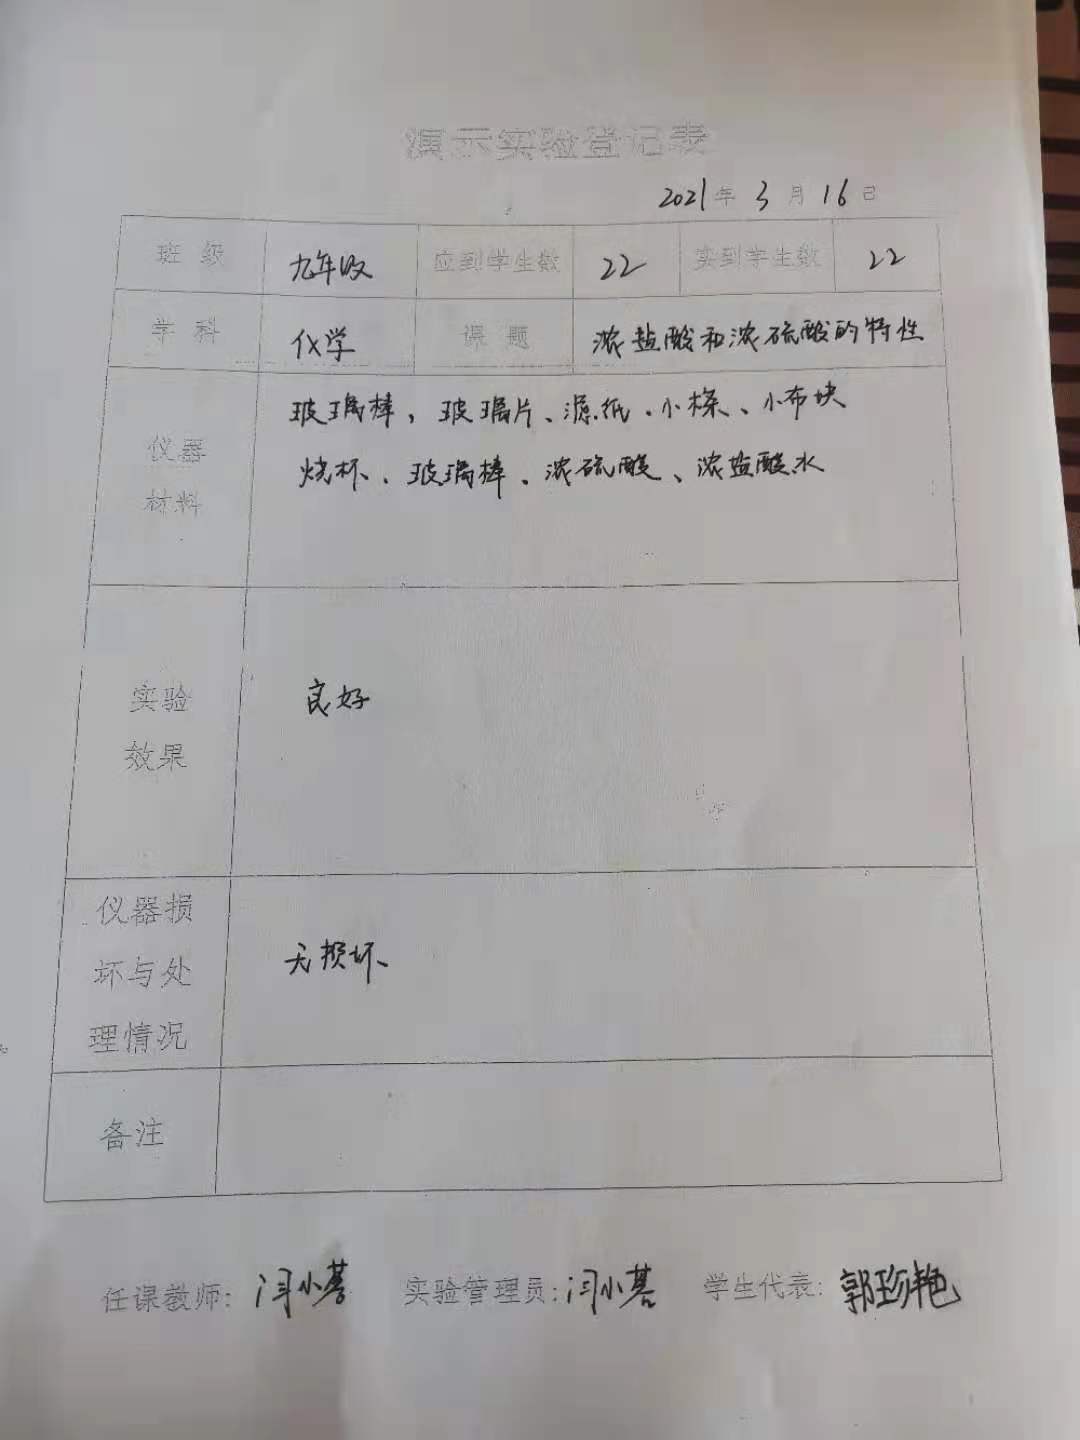 演示实验登记表
2021年3月16日
班级 九年级 应到学生数 22 实到学生数 22
学科 化学 课题 浓盐酸和浓硫酸的特性
仪器材料
玻璃棒,玻璃片、滤纸、小棒、小布块
烧杯、玻璃棒、浓硫酸、浓盐酸水
实验
效果
良好
仪器损
坏与处
理情况
无损坏、
备注
任课教师: 闫小 实验管理员: 闫小 学生代表: 郭珍艳